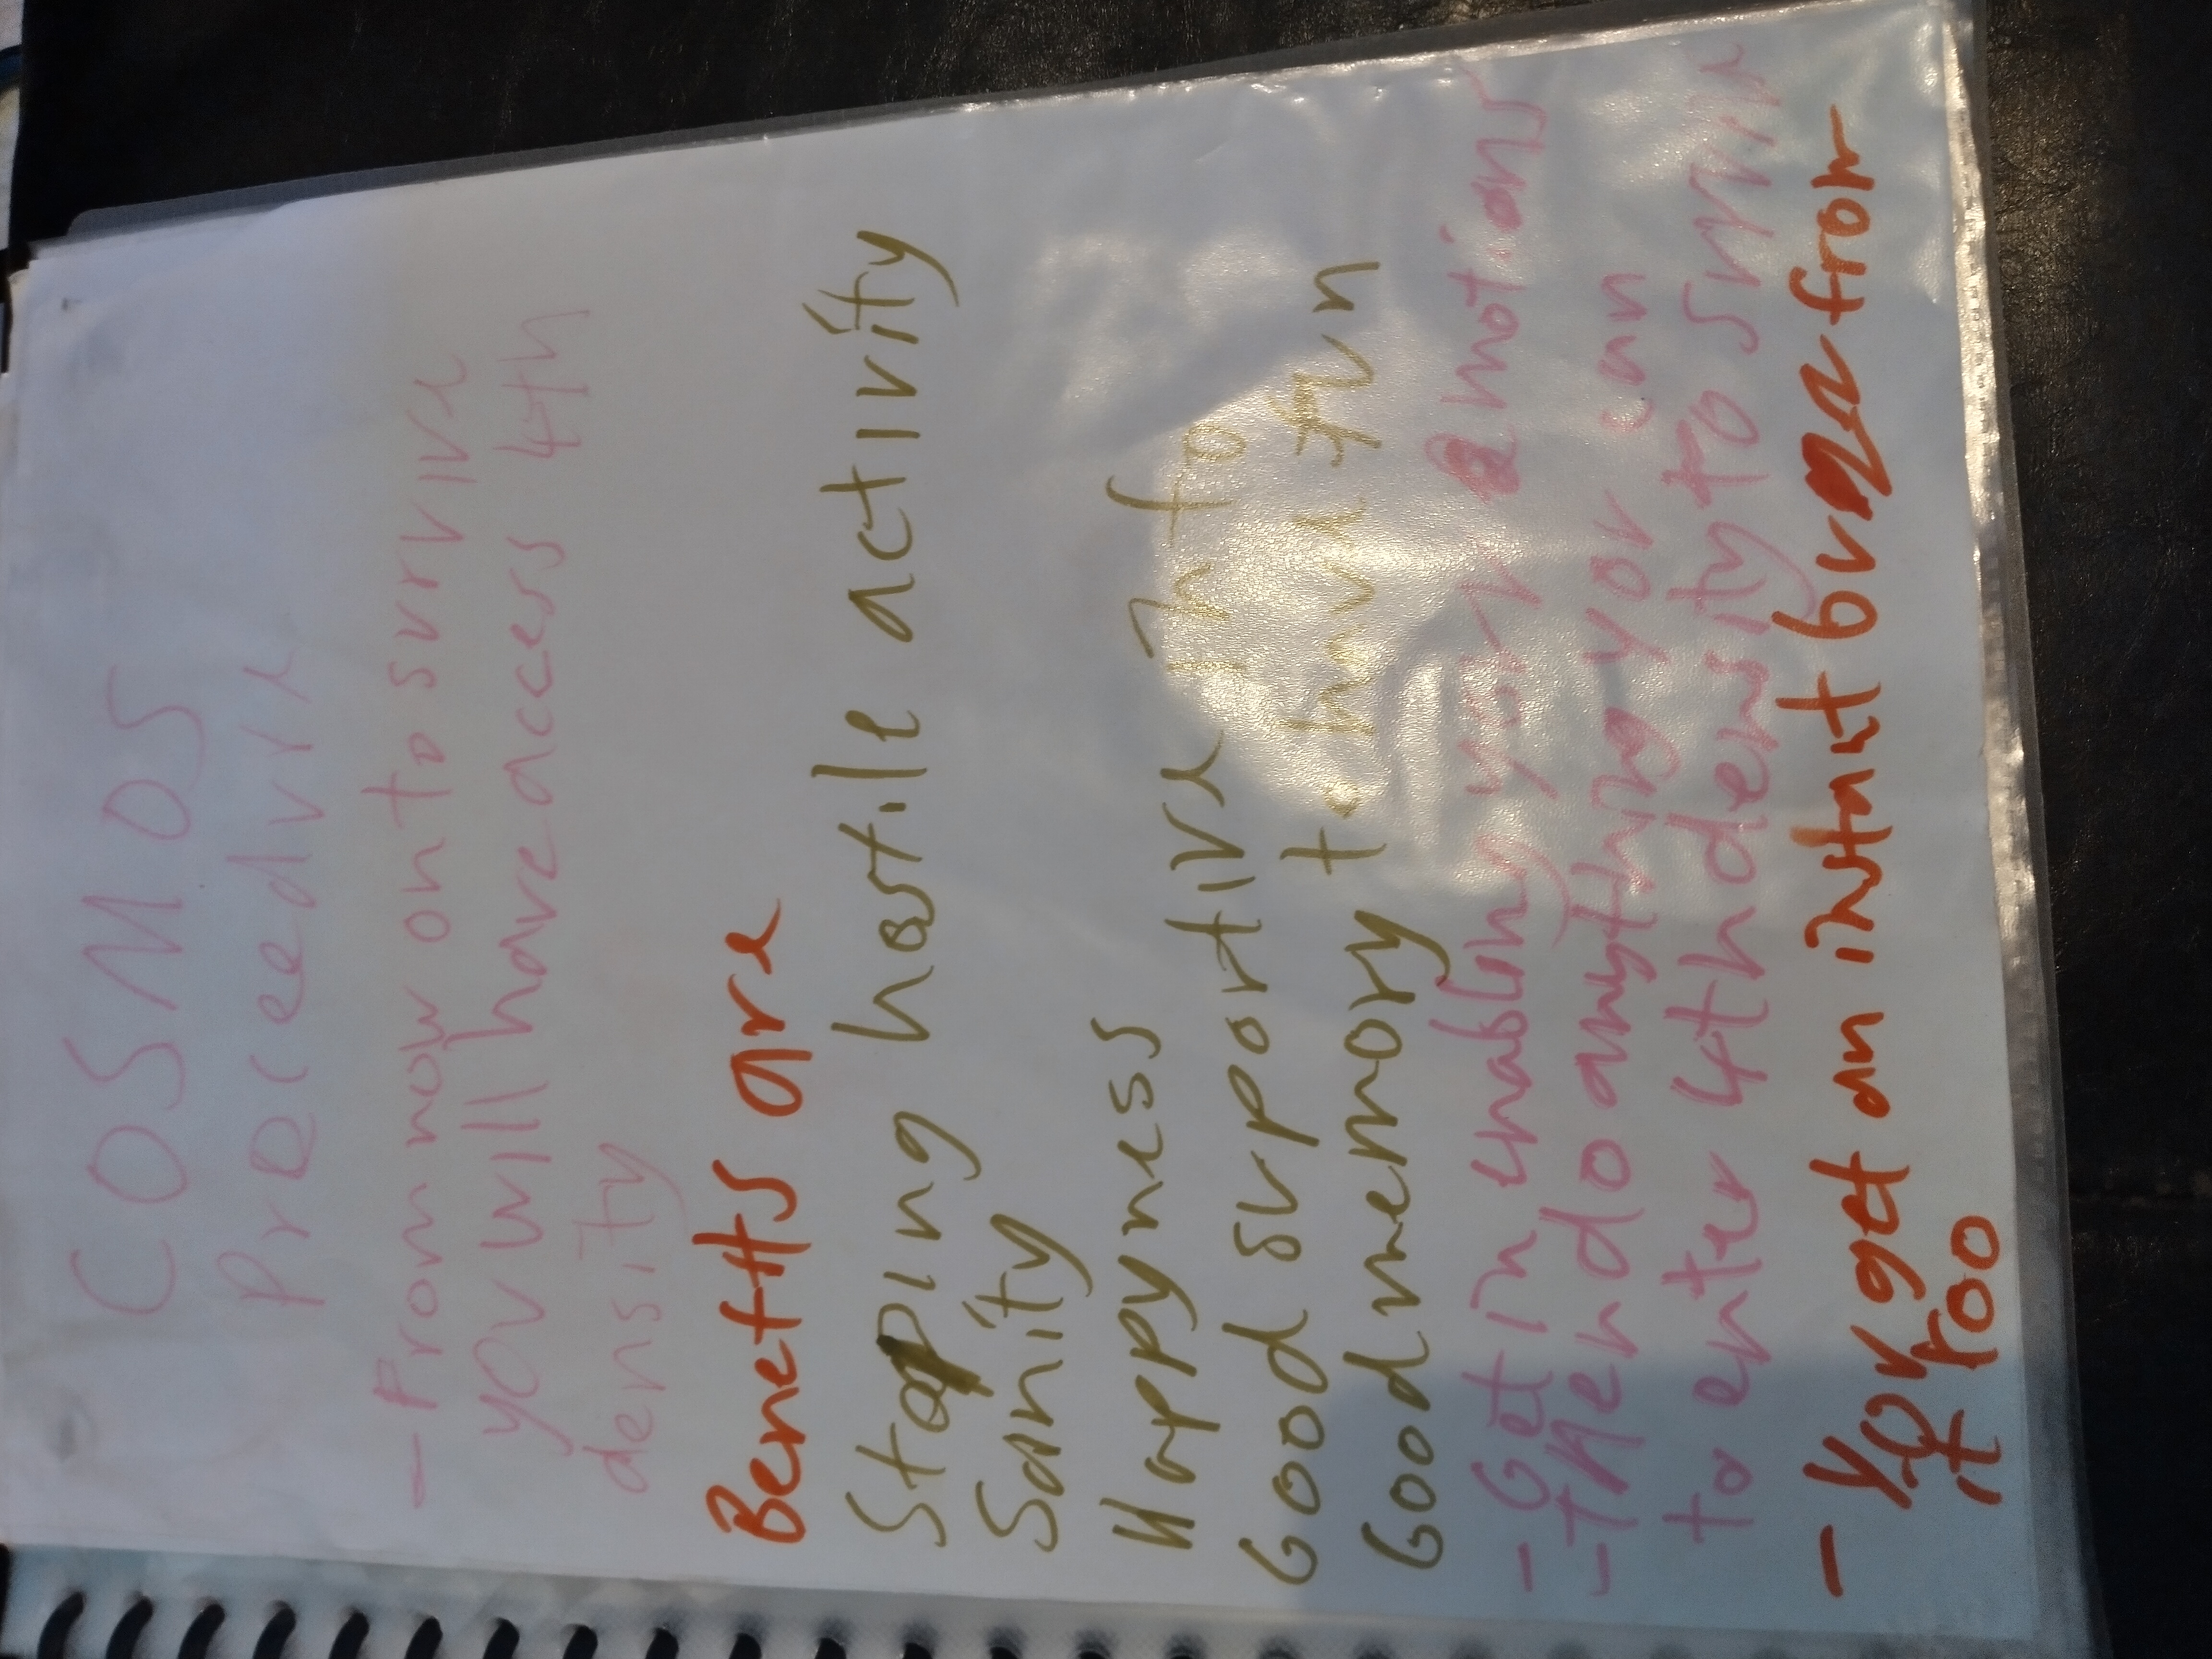 COSMOS
Preceedvre
- From now on to survive
you will have access 4th
density
Benefits are
Stoping hostile activity
Sanity
Happyness
Good suportive info
Good memory to hunt
- Get in enabling your emotions
- Then do anything you can
to enter 4th density to survive
- You get an instant from
it too